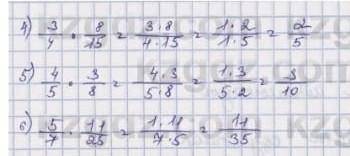 4) 3/4 · 8/15 = 3·8/4·15 = 1·2/1·5 = 2/5
5) 4/5 · 3/8 = 4·3/5·8 = 1·3/5·2 = 3/10
6) 5/7 · 11/25 = 1·11/7·5 = 11/35